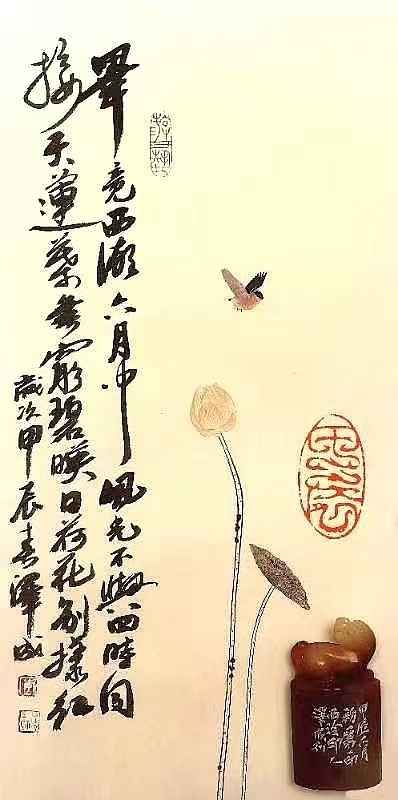 畢竟西湖六月中風光不與四時同
接天蓮葉無窮碧暎日荷花別樣紅
歲次甲辰春澤成